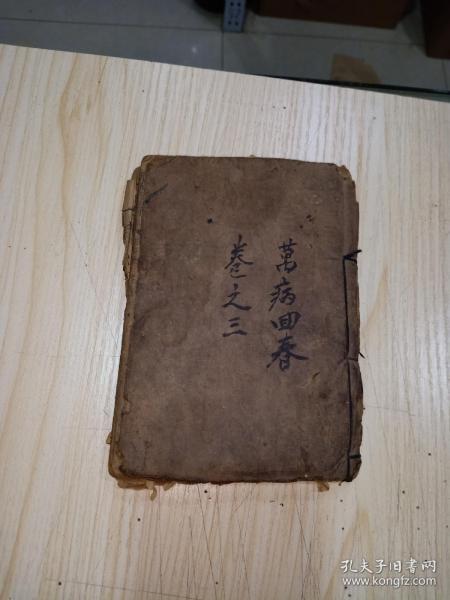 萬病回春
卷之三
孔夫子旧书网
www.kongfz.com